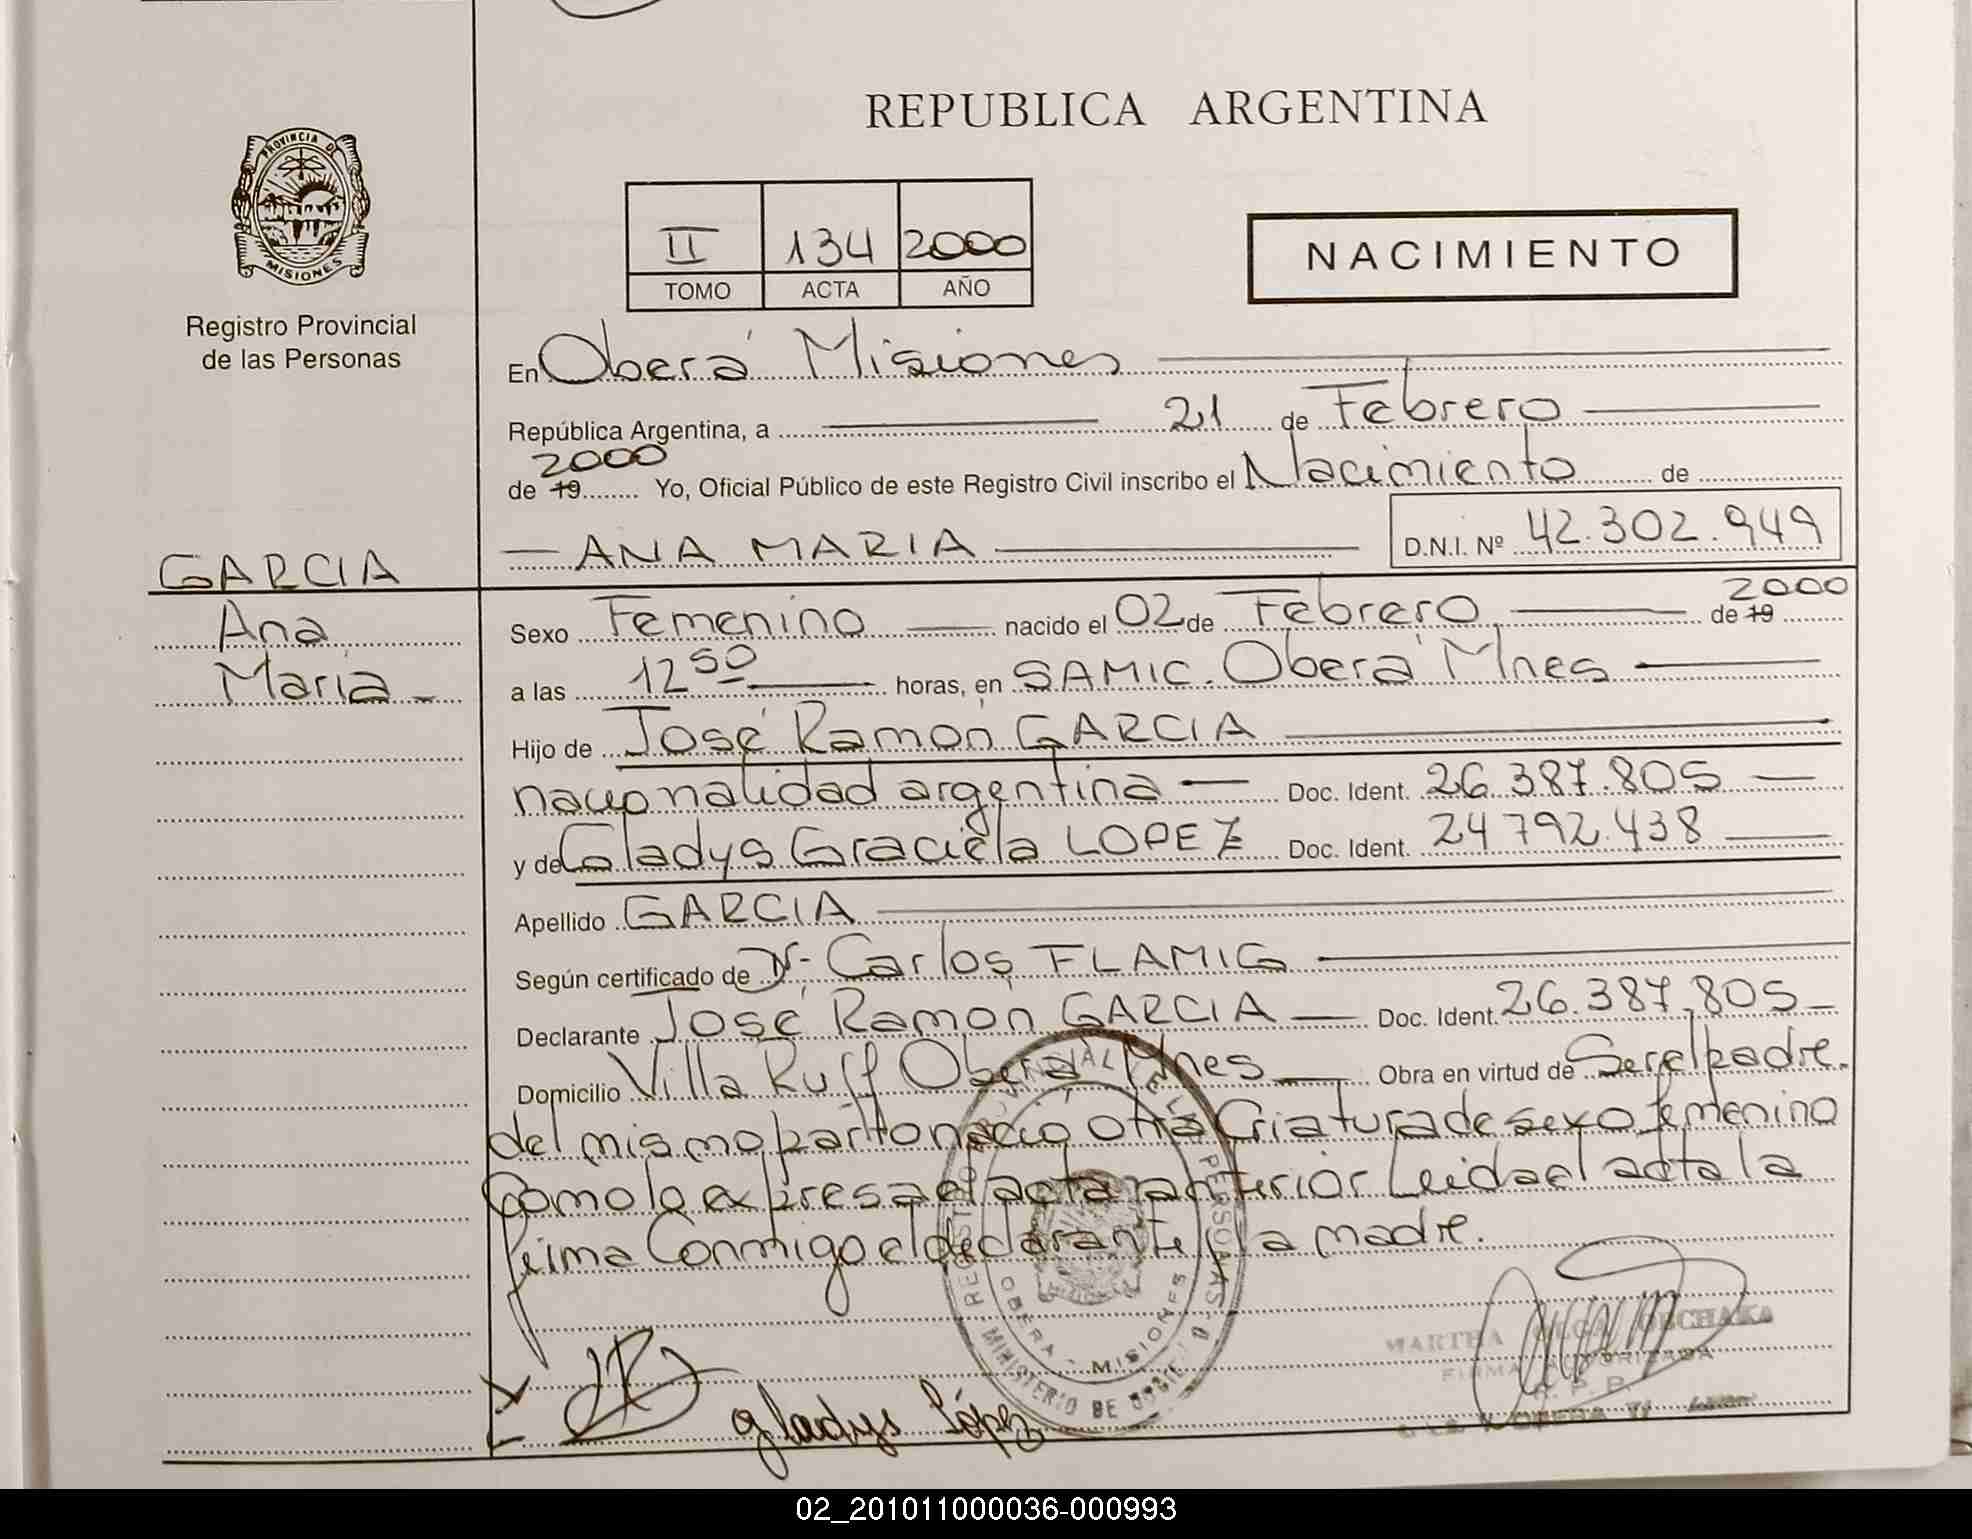 REPUBLICA ARGENTINA
PROVINCIA DE
MISIONES
Registro Provincial
de las Personas
II 134 2000
TOMO ACTA AÑO
NACIMIENTO
En Oberá Misiones
República Argentina, a 21 de Febrero
2000
de 19 Yo, Oficial Público de este Registro Civil inscribo el Nacimiento de
ANA MARIA D.N.I. Nº 42.302.949
GARCIA
Ana
Maria
2000
Sexo Femenino nacido el 02 de Febrero de 19
a las 12 50 horas, en SAMIC. Oberá Mnes
Hijo de José Ramón GARCIA
nacionalidad argentina Doc. Ident. 26.387.805
y de Gladys Graciela LOPEZ Doc. Ident. 24 792.438
Apellido GARCIA
Según certificado de Dr. Carlos FLAMIG
Declarante José Ramón GARCIA Doc. Ident. 26.387.805
Domicilio Villa Ruff Oberá Mnes Obra en virtud de Ser el padre.
del mismo parto nacio otra Criatura de sexo femenino
Como lo expresa el acta anterior Leida el acta la
firma Conmigo el declarante y la madre.
OBERA - MISIONES
MINISTERIO DE
gladys López
MARTHA OLGA
FIRMA AUTORIZADA
R. P. P.
02_201011000036-000993